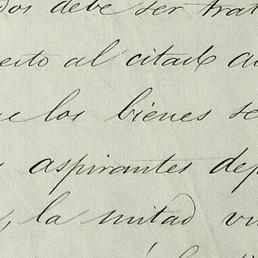 dos debe ser trat
ecto al citado a
e los bienes se
s aspirantes dep
, la mitad vi